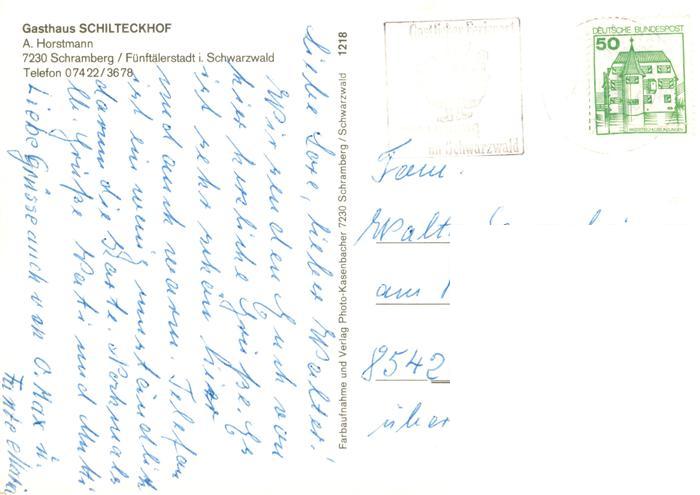 Gasthaus SCHILTECKHOF
A. Horstmann
7230 Schramberg / Fünftälerstadt i. Schwarzwald
Telefon 07422/3678
Liebe Lore, lieber Walter!
Wir senden Euch von
hier herzliche Grüße. Es
ist sehr schön hier
und auch warm. Telefon
ist ein wenig umständlich
darum die Karte. Nochmals
Grüße Kati und Mutti
Liebe Grüsse auch von O. Max u.
Tante
Farbaufnahme und Verlag Photo-Kasenbacher 7230 Schramberg / Schwarzwald 1218
im Schwarzwald
50
DEUTSCHE BUNDESPOST
Fam.
Walt
am
8542
über